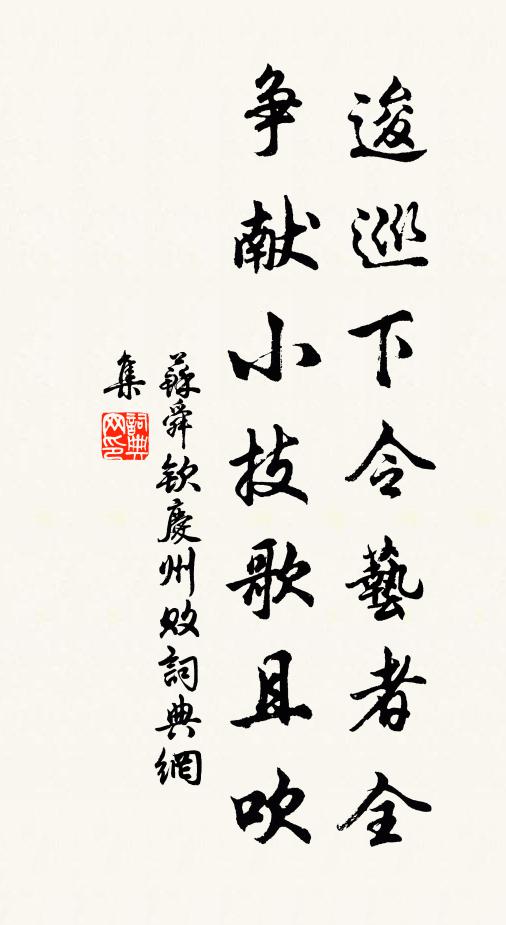 逡巡下令藝者全
争献小技歌且吹
蘇舜钦慶州败詞典網
集
詞典网印